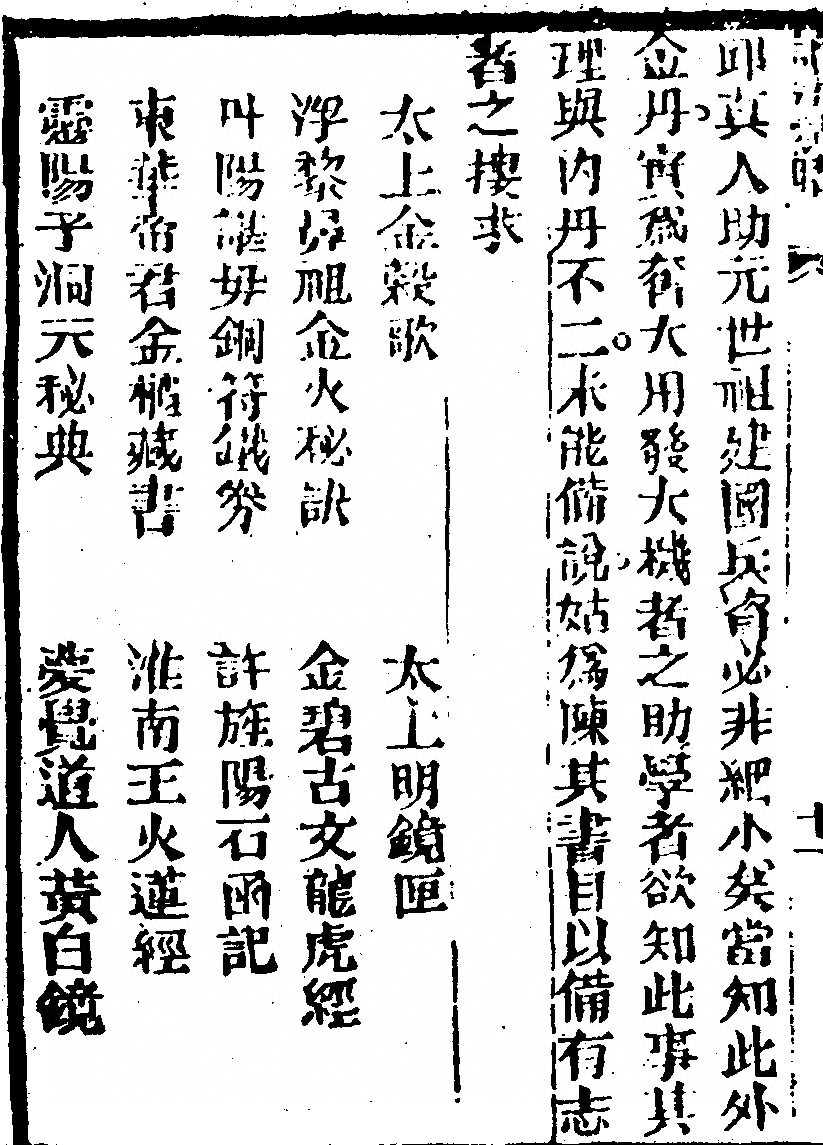 邱真人助元世祖建國兵資必非細小矣當知此外
金丹實爲奮大用發大機者之助學者欲知此事其
理與內丹不二未能備說姑爲陳其書目以備有志
者之摟求
太上金穀歌　太上明鏡匣
浮黎鼻祖金火秘訣　金碧古文龍虎經
叫陽諶母銅符鐵券　許旌陽石函記
東華帝君金樓藏書　淮南王火蓮經
靈陽子洞元秘典　夢覺道人黃白鏡
十一